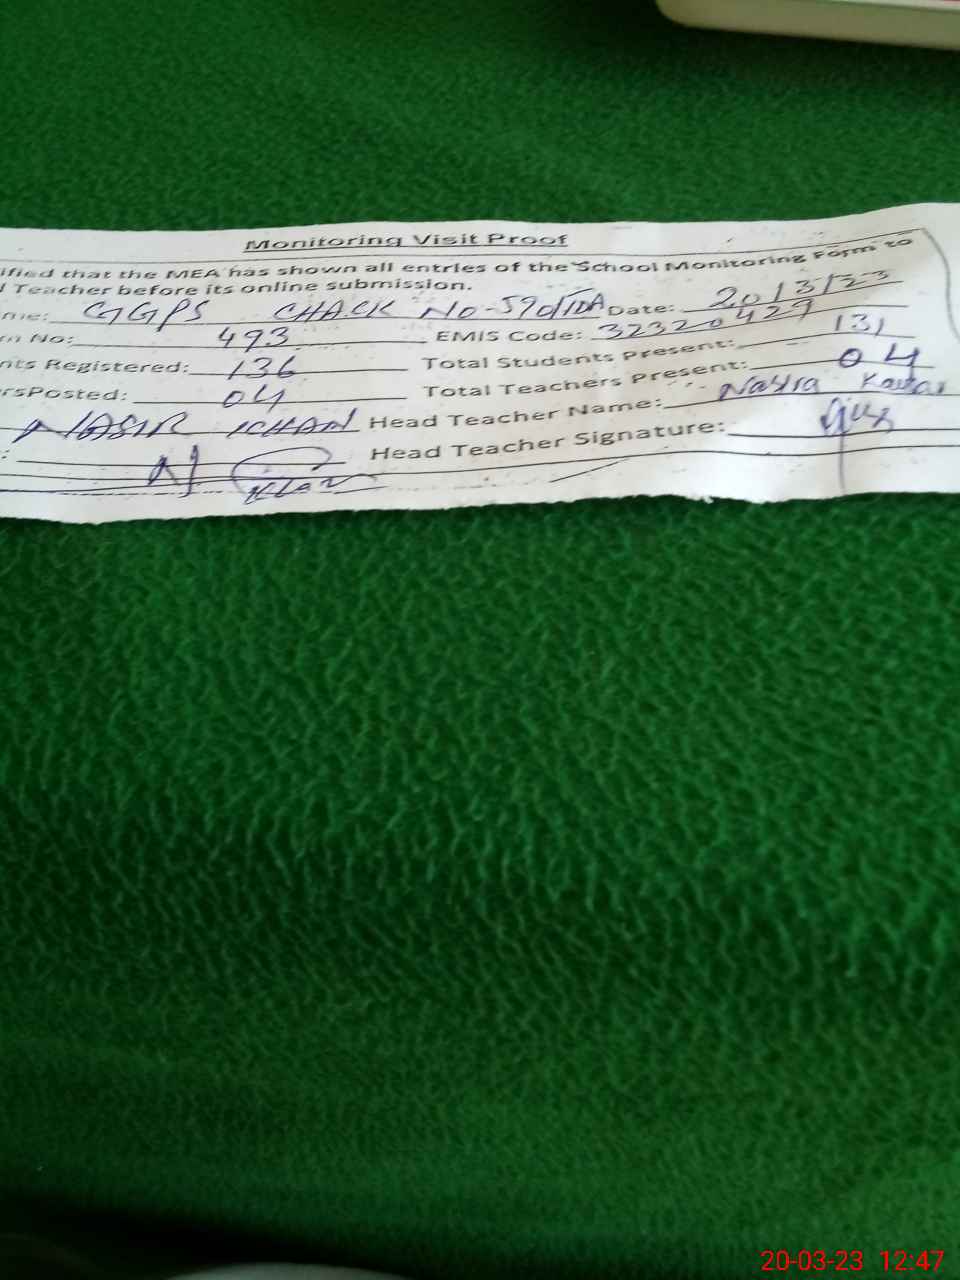 Monitoring Visit Proof
ified that the MEA has shown all entries of the School Monitoring Form to
d Teacher before its online submission.
me: GGPS CHACK NO-590/TDA Date: 20/3/23
m No: 493 EMIS Code: 32320429
nts Registered: 136 Total Students Present: 131
rsPosted: 04 Total Teachers Present: 04
NASIR KHAN Head Teacher Name: Nasra Kousar
: Head Teacher Signature:
20-03-23 12:47